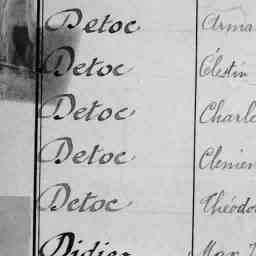 Detoc Arma
Detoc Célestin
Detoc Charle
Detoc Clemen
Detoc Théodo
Didier Max